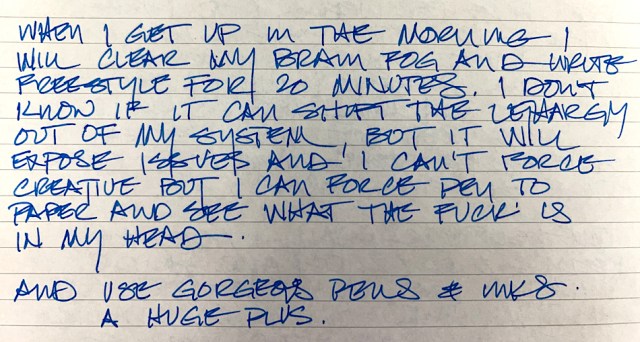 WHEN I GET UP IN THE MORNING I
WILL CLEAR MY BRAIN FOG AND WRITE
FREESTYLE FOR 20 MINUTES. I DON'T
KNOW IF IT CAN SHIFT THE LETHARGY
OUT OF MY SYSTEM, BUT IT WILL
EXPOSE ISSUES AND I CAN'T FORCE
CREATIVE BUT I CAN FORCE PEN TO
PAPER AND SEE WHAT THE FUCK IS
IN MY HEAD.
AND USE GORGEOS PENS & INKS.
A HUGE PLUS.